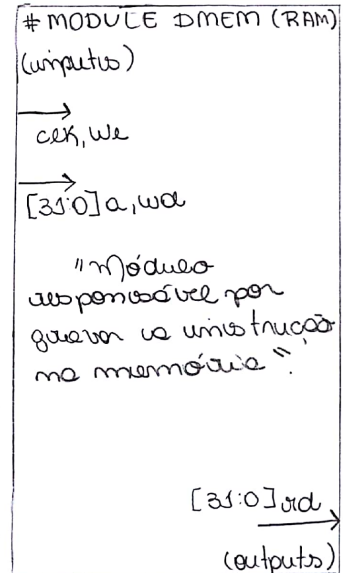 # MODULE DMEM (RAM)
(inputs)
clk, we
[31:0] a, wd
"Módulo
responsável por
gravar a instrução
na memória".
[31:0] rd
(outputs)